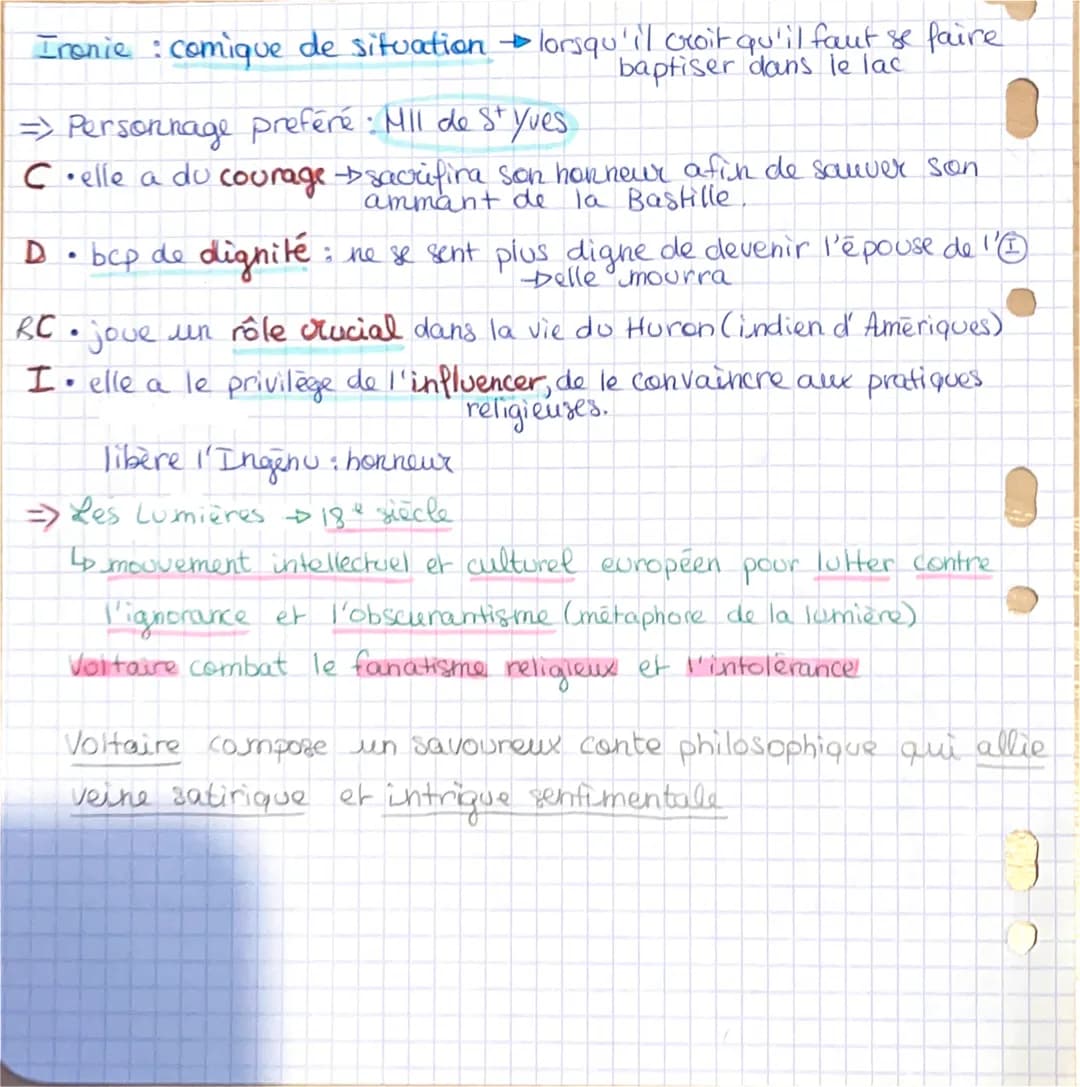 Ironie : comique de situation → lorsqu'il croit qu'il faut se faire
baptiser dans le lac
=> Personnage préféré : Mll de St Yves
C • elle a du courage → sacrifira son honneur afin de sauver son
ammant de la Bastille.
D • bcp de dignité : ne se sent plus digne de devenir l'épouse de l'Ⓘ
→ elle mourra
RC • joue un rôle crucial dans la vie du Huron (indien d'Amériques)
I • elle a le privilège de l'influencer, de le convaincre aux pratiques
religieuses.
libère l'Ingénu : honneur
=> Les Lumières → 18e siècle
↳ mouvement intellectuel et culturel européen pour lutter contre
l'ignorance et l'obscurantisme (métaphore de la lumière)
Voltaire combat le fanatisme religieux et l'intolérance
Voltaire compose un savoureux conte philosophique qui allie
veine satirique et intrigue sentimentale